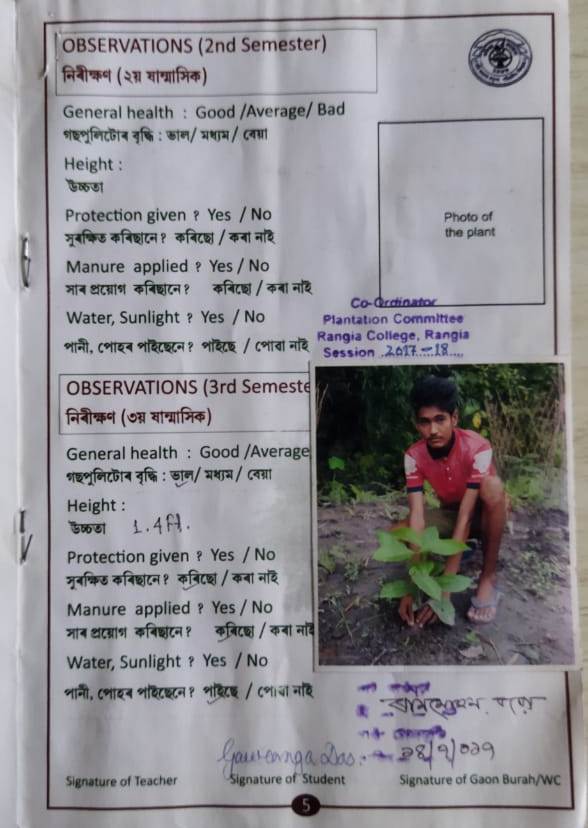 OBSERVATIONS (2nd Semester)
নিৰীক্ষণ (২য় ষান্মাসিক)
General health : Good /Average/ Bad
গছপুলিটোৰ বৃদ্ধি : ভাল/ মধ্যম / বেয়া
Height :
উচ্চতা
Protection given ? Yes / No
সুৰক্ষিত কৰিছানে? কৰিছো / কৰা নাই
Manure applied ? Yes / No
সাৰ প্ৰয়োগ কৰিছানে? কৰিছো / কৰা নাই
Water, Sunlight ? Yes / No
পানী, পোহৰ পাইছেনে? পাইছে / পোৱা নাই
Photo of
the plant
Co-Ordinator
Plantation Committee
Rangia College, Rangia
Session 2017-18
OBSERVATIONS (3rd Semeste
নিৰীক্ষণ (৩য় ষান্মাসিক)
General health : Good /Average
গছপুলিটোৰ বৃদ্ধি : ভাল/ মধ্যম / বেয়া
Height :
উচ্চতা 1.4 ft.
Protection given ? Yes / No
সুৰক্ষিত কৰিছানে? কৰিছো / কৰা নাই
Manure applied ? Yes / No
সাৰ প্ৰয়োগ কৰিছানে? কৰিছো / কৰা নাই
Water, Sunlight ? Yes / No
পানী, পোহৰ পাইছেনে? পাইছে / পোৱা নাই
Das
Signature of Teacher
Signature of Student
Signature of Gaon Burah/WC
5